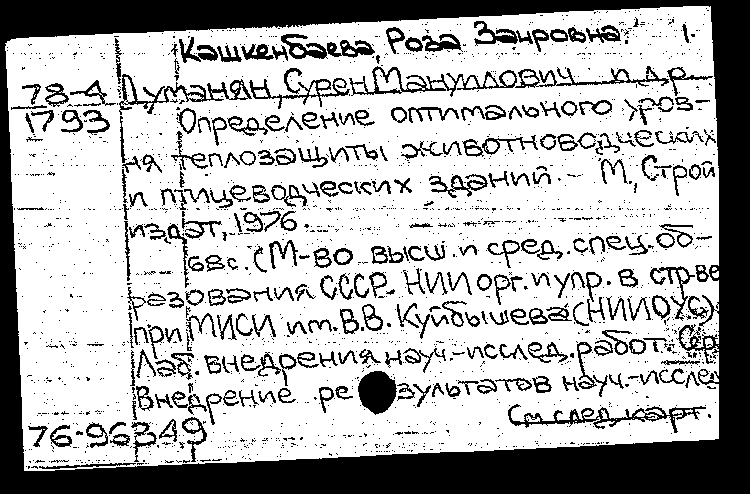 Кашкенбаева, Роза Заировна. 1.
78-4 Думанян, Сурен Мануилович и др.
1793 Определение оптимального уров-
ня теплозащиты животноводческих
и птицеводческих зданий. – М., Строй
издат, 1976.
68с. (М-во высш. и сред. спец. об-
разования СССР. НИИ орг. и упр. в стр-ве
при МИСИ им. В.В. Куйбышева (НИИОУС)
Лаб. внедрения науч.-исслед. работ. Сер.
Внедрение результатов науч.-исслед
См след. карт.
76-96349